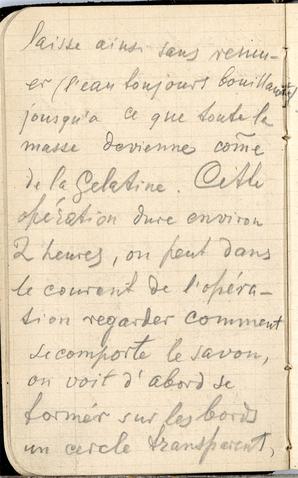 laisse ainsi sans remu-
er (l'eau toujours bouillante)
jousqu'a ce que toute la
masse devienne com̄e
de la Gelatine. Cette
opération dure environ
2 heures, on peut dans
le courent de l'opéra-
tion regarder comment
se comporte le savon,
on voit d'abord se
formér sur les bords
un cercle transparent,